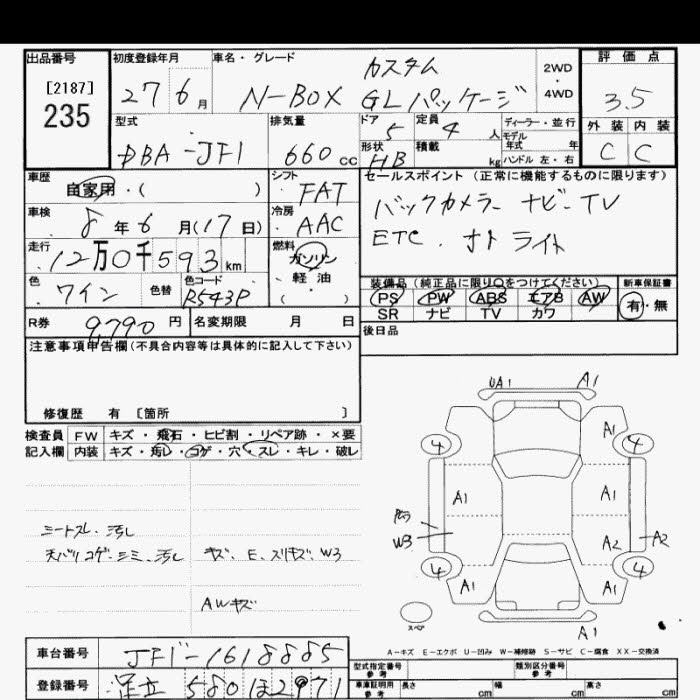 出品番号 初度登録年月 車名・グレード 評価点
[2187]
235
27 6月
カスタム
N-BOX GLパッケージ
2WD
・
4WD
3.5
型式 排気量 ドア 定員 ディーラー・並行 外装 内装
DBA-JF1 660cc 5 4人 モデル年式 年式
形状 HB 積載 kg ハンドル 左・右 C C
車歴 シフト セールスポイント(正常に機能するものに限ります)
自家用・( ) FAT
バックカメラ ナビ・TV
車検 冷房
8年6月(17日) AAC
ETC. オートライト
走行 燃料
12万0千593km ガソリン
軽油
( )
色 色替 色コード
ワイン R543P
装備品(純正品に限り○をつけてください) 新車保証書
PS PW ABS エアB AW 有・無
SR ナビ TV カワ
R券 9,790円 名変期限 月 日
後日品
注意事項申告欄(不具合内容等は具体的に記入して下さい)
修復歴 有 [箇所 ]
検査員 FW キズ・飛石・ヒビ割・リペア跡・×要
記入欄 内装 キズ・汚レ・コゲ・穴・スレ・キレ・破レ
UA1 A1
A1
4 4
A1 A1
W3 A2 A2
4 4
A1 A1
スペア A1
シートスレ、汚レ
天バリコゲ・シミ、汚レ キズ、E、スリキズ、W3
AWキズ
A-キズ E-エクボ U-凹み W-補修跡 S-サビ C-腐食 XX-交換済
車台番号 JF1-1618885
登録番号 足立 580 ほ 2971
型式指定番号 参考 類別区分番号 参考
車庫証明用 参考 長さ cm 幅 cm 高さ cm